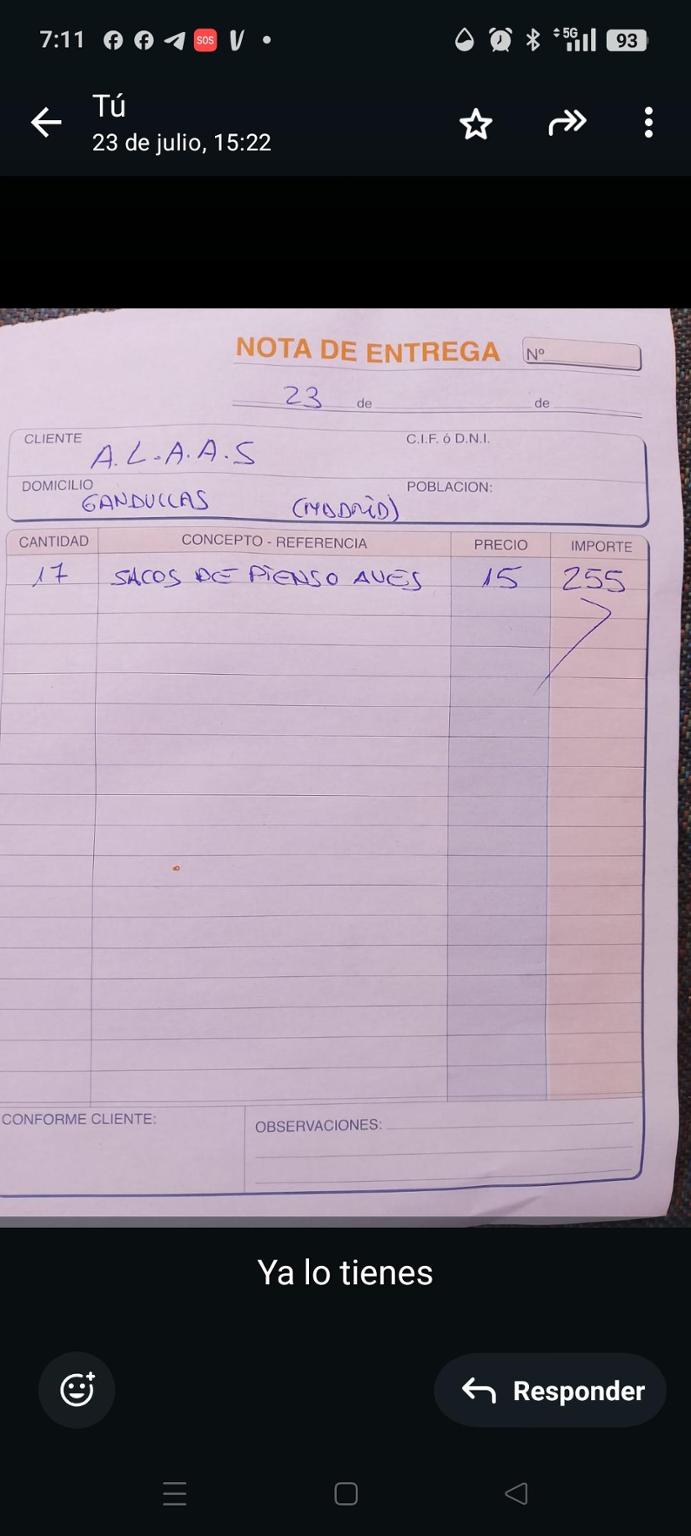 7:11 SOS 5G 93
Tú
23 de julio, 15:22
NOTA DE ENTREGA Nº
23 de de
CLIENTE A.L.A.A.S C.I.F. ó D.N.I.
DOMICILIO GANDULLAS (MADRID) POBLACION:
CANTIDAD CONCEPTO - REFERENCIA PRECIO IMPORTE
17 SACOS DE PIENSO AVES 15 255
CONFORME CLIENTE: OBSERVACIONES:
Ya lo tienes
Responder